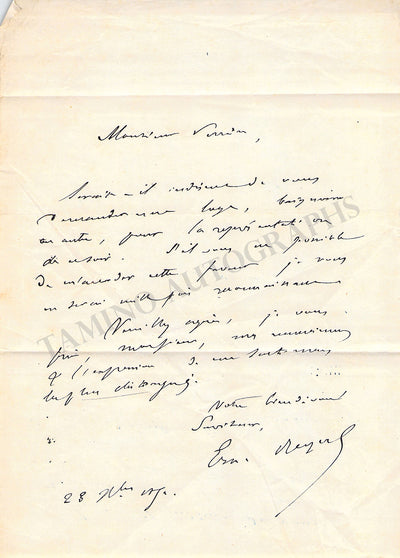 Monsieur
Serait-il indiscret de vous
demander une loge, baignoire
ou autre, pour la représentation
de ce soir. S'il vous est possible
de m'accorder cette faveur je vous
en serai mille fois reconnaissant
Veuillez agréer, je vous
prie, monsieur, mes
& l'expression de mes sentiments
les plus distingués.
Votre bien dévoué
Serviteur,
E. Reyer
28 Xbre
TAMINO AUTOGRAPHS